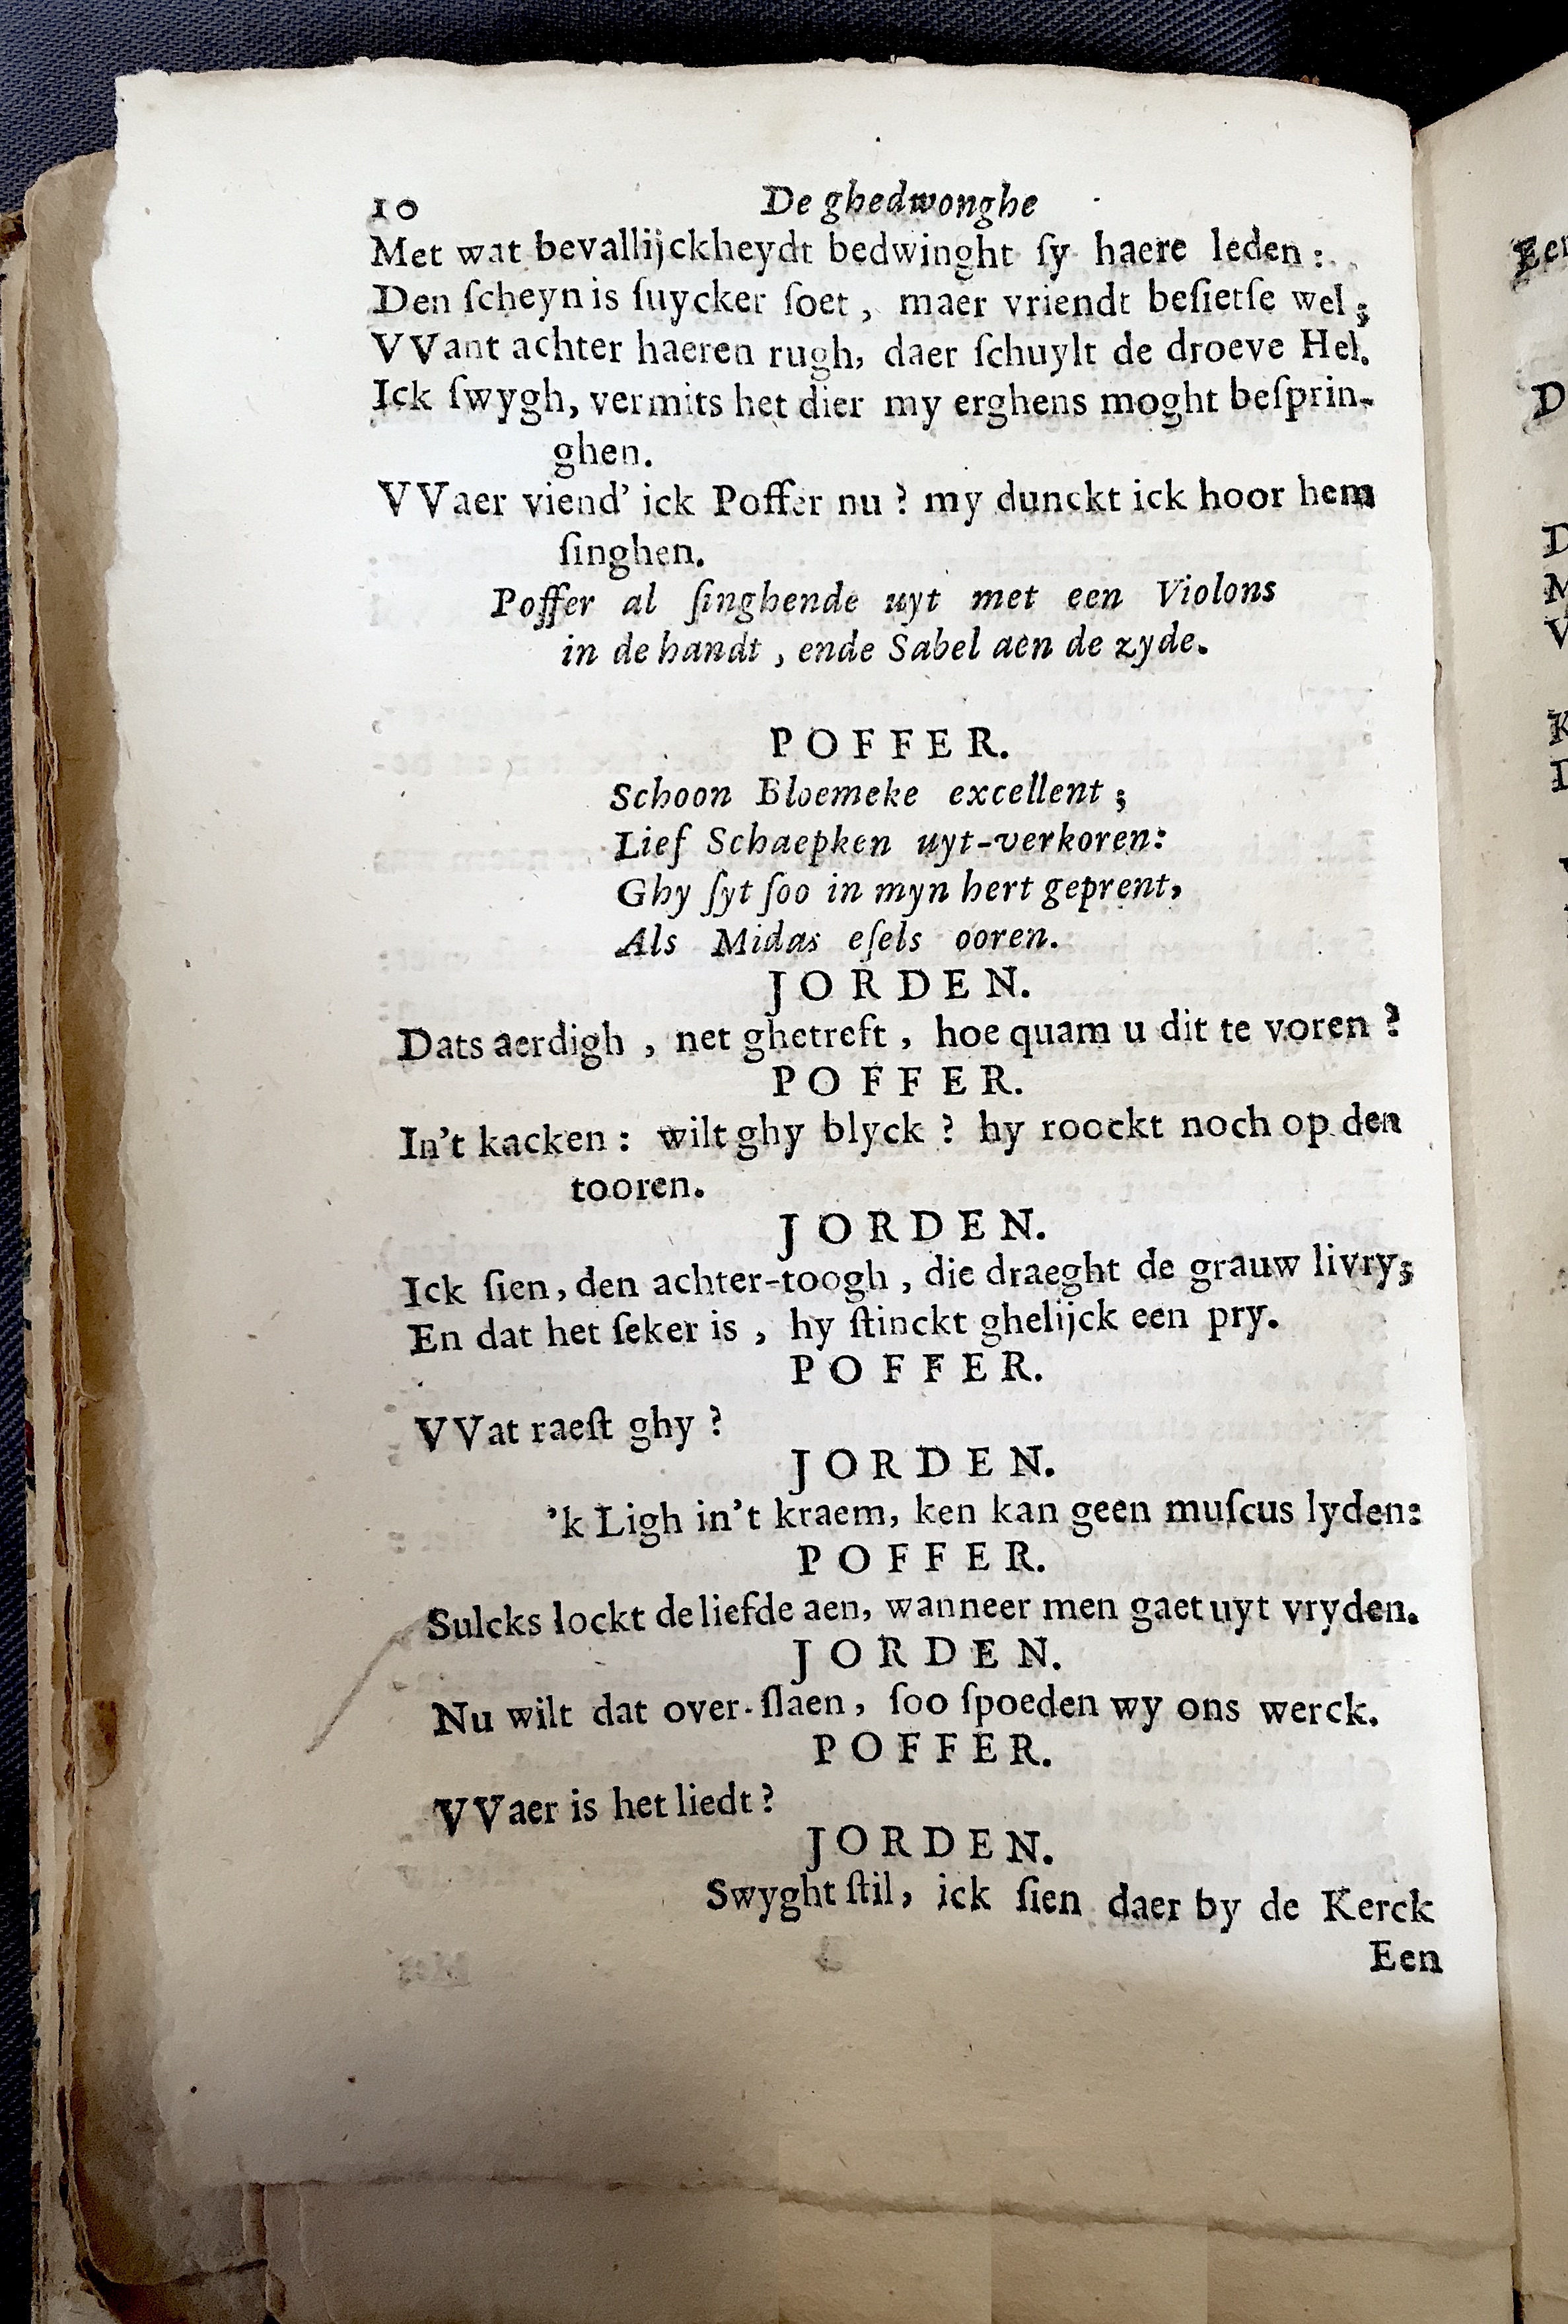 10 De ghedwonghe
Met wat bevallijckheydt bedwinght ſy haere leden:
Den ſcheyn is ſuycker ſoet, maer vriendt beſietſe wel;
VVant achter haeren rugh, daer ſchuylt de droeve Hel.
Ick ſwygh, vermits het dier my erghens moght beſprin-
ghen.
VVaer viend' ick Poffer nu? my dunckt ick hoor hem
ſinghen.
Poffer al ſinghende uyt met een Violons
in de handt, ende Sabel aen de zyde.
POFFER.
Schoon Bloemeke excellent;
Lief Schaepken uyt-verkoren:
Ghy ſyt ſoo in myn hert geprent,
Als Midas eſels ooren.
JORDEN.
Dats aerdigh, net ghetreft, hoe quam u dit te voren?
POFFER.
In't kacken: wilt ghy blyck? hy roockt noch op den
tooren.
JORDEN.
Ick ſien, den achter-toogh, die draeght de grauw livry;
En dat het ſeker is, hy ſtinckt ghelijck een pry.
POFFER.
VVat raeſt ghy?
JORDEN.
'k Ligh in't kraem, ken kan geen muſcus lyden:
POFFER.
Sulcks lockt de liefde aen, wanneer men gaet uyt vryden.
JORDEN.
Nu wilt dat over-ſlaen, ſoo ſpoeden wy ons werck.
POFFER.
VVaer is het liedt?
JORDEN.
Swyght ſtil, ick ſien daer by de Kerck
Een